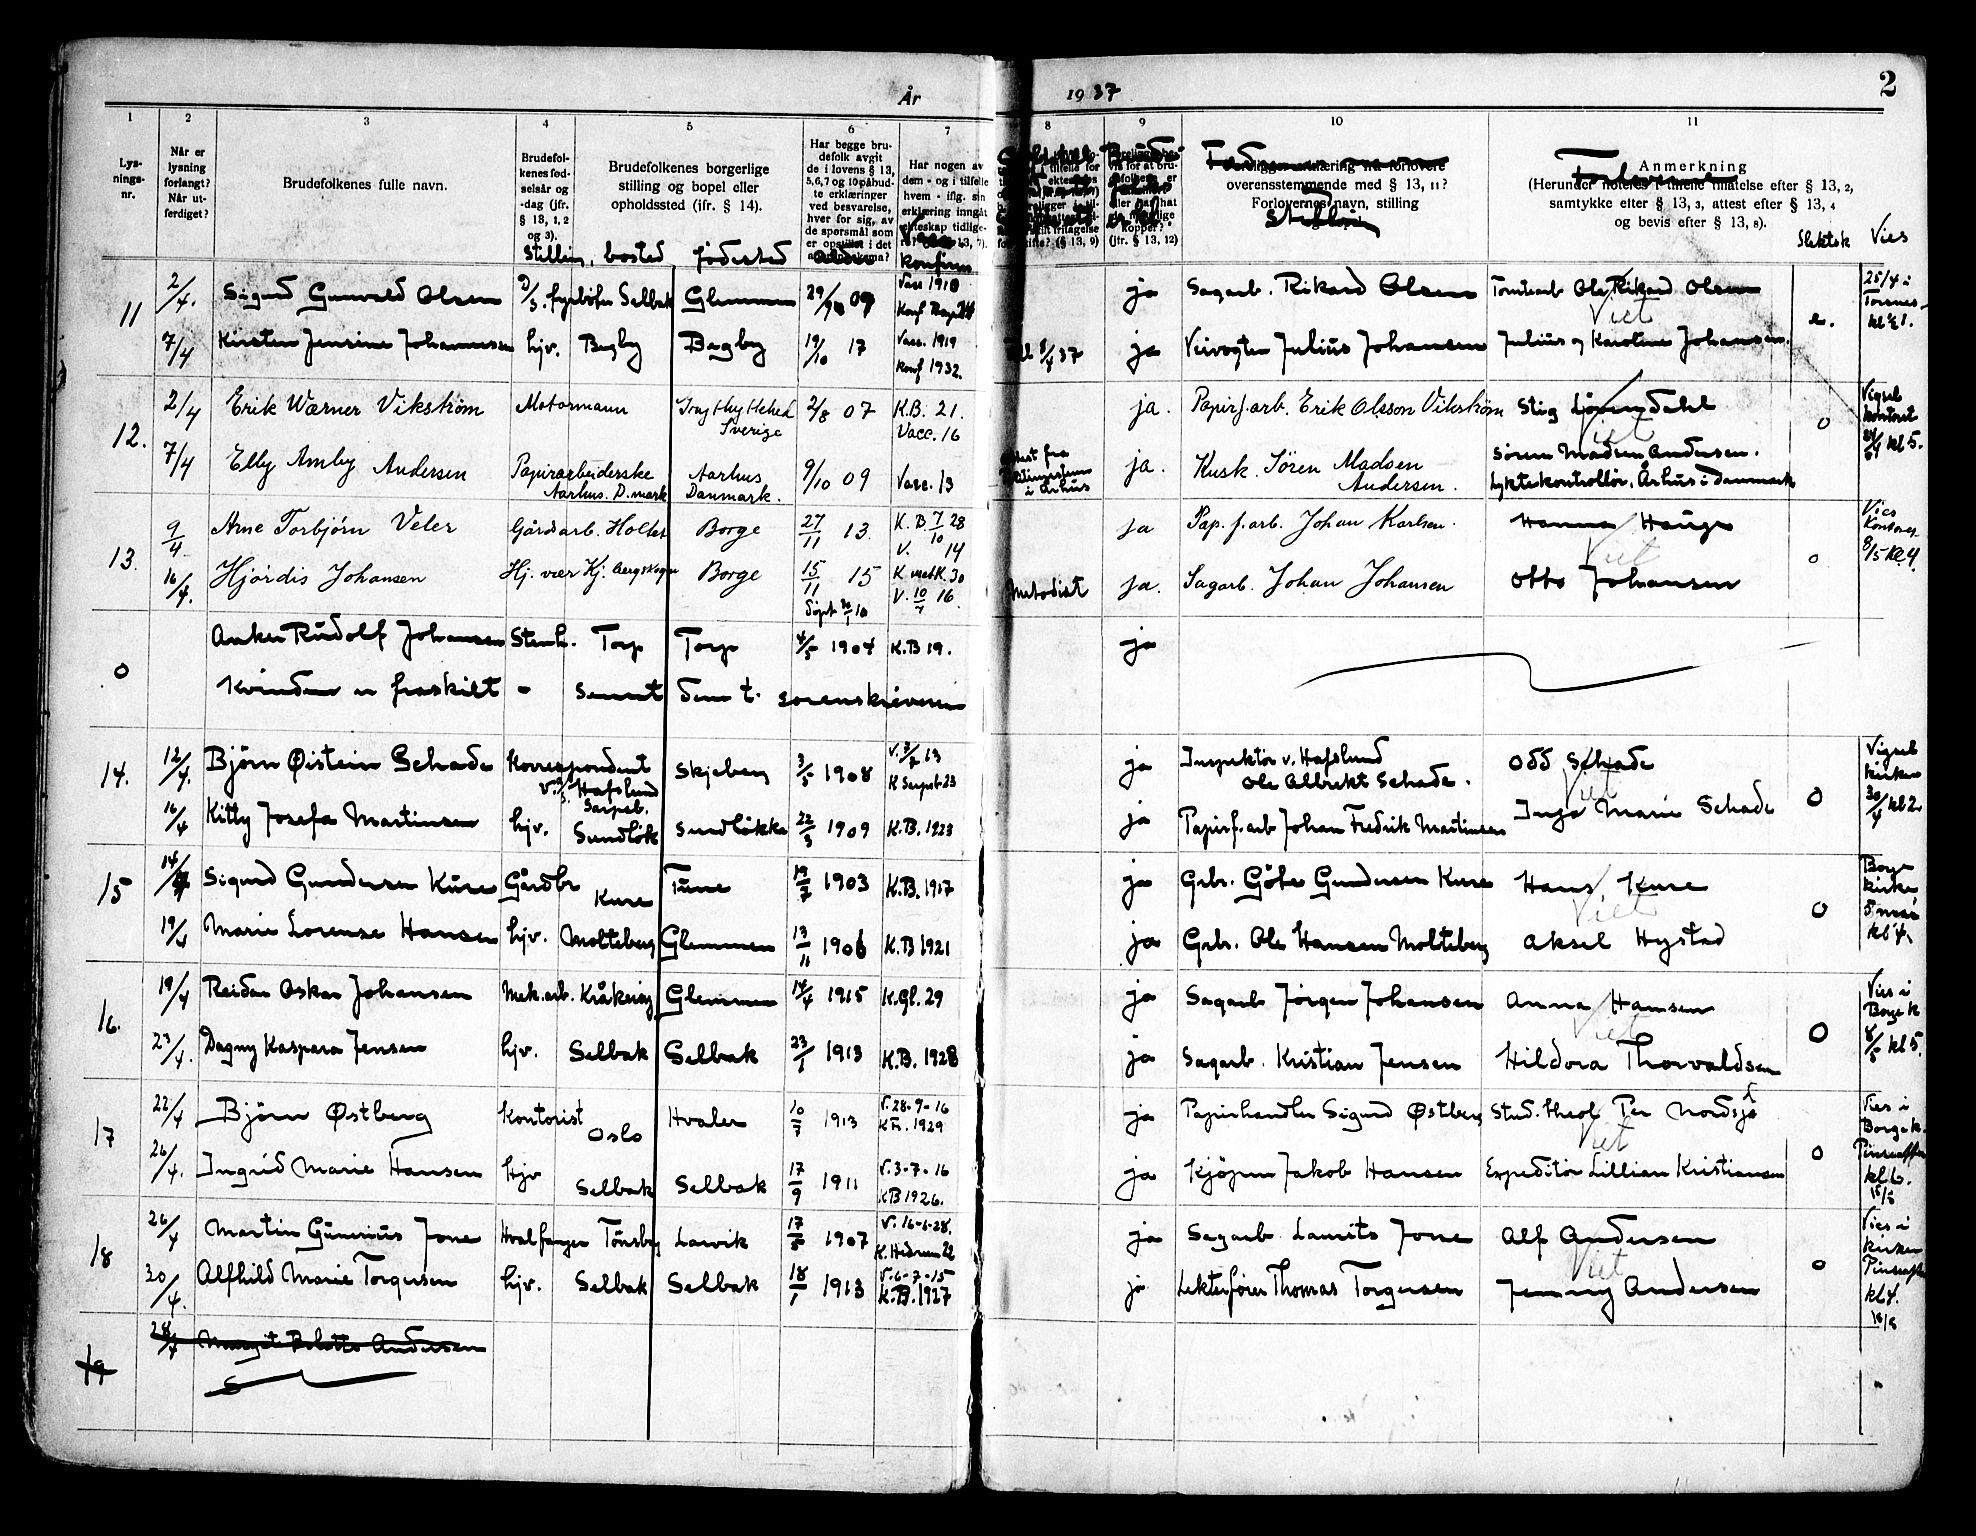 År 1937
2
1 2 3 4 5 6 7 8 9 10 11
Lys-
nings-
nr.
Når er
lysning
forlangt?
Når ut-
ferdiget?
Brudefolkenes fulle navn.
Brudefol-
kenes fød-
selsår og
-dag (jfr.
§ 13, 1, 2
og 3).
Brudefolkenes borgerlige
stilling og bopel eller
opholdssted (ifr. § 14).
Stilling, bosted, födested
Har begge bru-
defolk avgit
de i lovens § 13,
5,6,7 og 10 påbud-
te erklæringer
ved besvarelse,
hver for sig, av
de spørsmål som
er opstillet i det
Har nogen av
dem - og i tilfelle
hvem - iflg. sin
erklæring inngått
ekteskap tidlige-
konfirm
(jfr. § 13, 12)
overensstemmende med § 13, 11?
Forlovernes navn, stilling
Anmerkning
Forlovere
(Herunder noteres i tilfelle tillatelse efter § 13, 2,
samtykke efter § 13, 3, attest efter § 13, 4
og bevis efter § 13, 8).
Slektsk Vies
11 2/4. Sigurd Gunvald Olsen fyrböter Selbak Glemmen 29/ 09 Vacc 1910 ja Sagarb. Rikard Olsen Tomtearb Ole Rikard Olsen 25/4 i
Viet Torsnes
7/4 Kirsten Jensine Johannessen hjv. Begby Begby 19/10 17 Vacc. 1919 ja Veivogter Julius Johansen Julius og Karoline Johansen.
konf 1932.
12. 2/4 Erik Wærner Vikstrøm Motormann Sverige 2/8 07 K.B. 21. ja. Papirf.arb. Erik Olsson Vikstrøm Stig Lövendahl Vigsel
Vacc. 16 Viet kontoret
kl 5.
7/4 Elly Amby Andersen Papirarbeiderske Aarhus 9/10 09 Vacc. 13 i Århus ja. Kusk. Søren Madsen Sören Madsen Andersen.
Aarhus. D.mark Danmark. Andersen. Lyktekontrollör, Århus i Danmark
13. 9/4. Arne Torbjörn Veler Gårdarb. Holtet Borge 27/11 13. K. B 7/10 28 ja Pap.f.arb. Johan Karlsen. Hanna Hauge Vies
V. 14 Viet Kontoret
8/5 kl 4.
16/4. Hjördis Johansen Hj. vær Kj. Borge 15/11 15 K. 30 Metodist ja. Sagarb. Johan Johansen Otto Johansen
V. 10/7 16.
0 Anker Rudolf Johansen Stenh. Torp Torp 4/5 1904 K.B 19. ja
Kvinden er fraskilt - Sendt dem t. sorenskriveren
14. 12/4. Björn Øistein Schade Korrespondent Skjeberg 3/5 1908 V. 3/7 13 ja Inspektör v. Hafslund Odd Schade Vigsel
Hafslund K Sarpsb. 23 Ole Albrekt Schade. Viet kirken
Sarpsb. 30/4 kl 2.
16/4 Kitty Josefa Martinsen hjv. Sundlökk Sundlökka 22/3 1909 K.B. 1923 ja Papirf.arb Johan Fredrik Martinsen Inga Marie Schade 0
15 14/4 Sigurd Gundersen Kure Gårdbr Kure Tune 19/7 1903 K.B. 1917 ja Grbr. Göte Gundersen Kure Hans Kure Borge
Viet kirke
19/4 Marie Lorense Hansen hjv. Molteberg Glemmen 13/11 1906 K.B 1921 ja Grbr. Ole Hansen Molteberg Aksel Hystad 0 kl 4.
16. 19/4 Reidar Oskar Johansen Mek.arb. Kråkeröy Glemmen 14/4 1915 K.Gl. 29 ja Sagarb Jörgen Johansen Anna Hansen Vies i
Viet Borge k
23/4. Dagny Kaspara Jensen hjv. Selbak Selbak 23/1 1913 K.B. 1928 ja Sagarb. Kristian Jensen Hildora Thorvaldsen 0 8/5 kl 5.
17 22/4 Björn Østberg Kontorist Oslo Hvaler 10/7 1913 V. 28-9-16 ja Papirhandler Sigurd Østberg Stud. theol Per Nordsjö Vies i
1929 Viet Borge k.
26/4. Ingrid Marie Hansen hjv Selbak Selbak 17/9 1911 V. 3-7-16 ja Kjöpm Jakob Hansen Expeditör Lillian Kristiansen 0 Pinseaften
KB 1926. kl 6.
18 26/4 Martin Gunnius Jone Hvalfanger Tönsberg Larvik 17/5 1907 V. 16-6-28. ja Sagarb Laurits Jone Alf Andersen Vies i
K. Hedrum 22 Viet kirken
30/4. Alfhild Marie Torgersen hjv. Selbak Selbak 18/1 1913 V. 6-7-15 ja Lekterförer Thomas Torgersen Jenny Andersen 0 Pinseaften
K.B. 1927 kl 4.
19 28/4 Margit Andersen